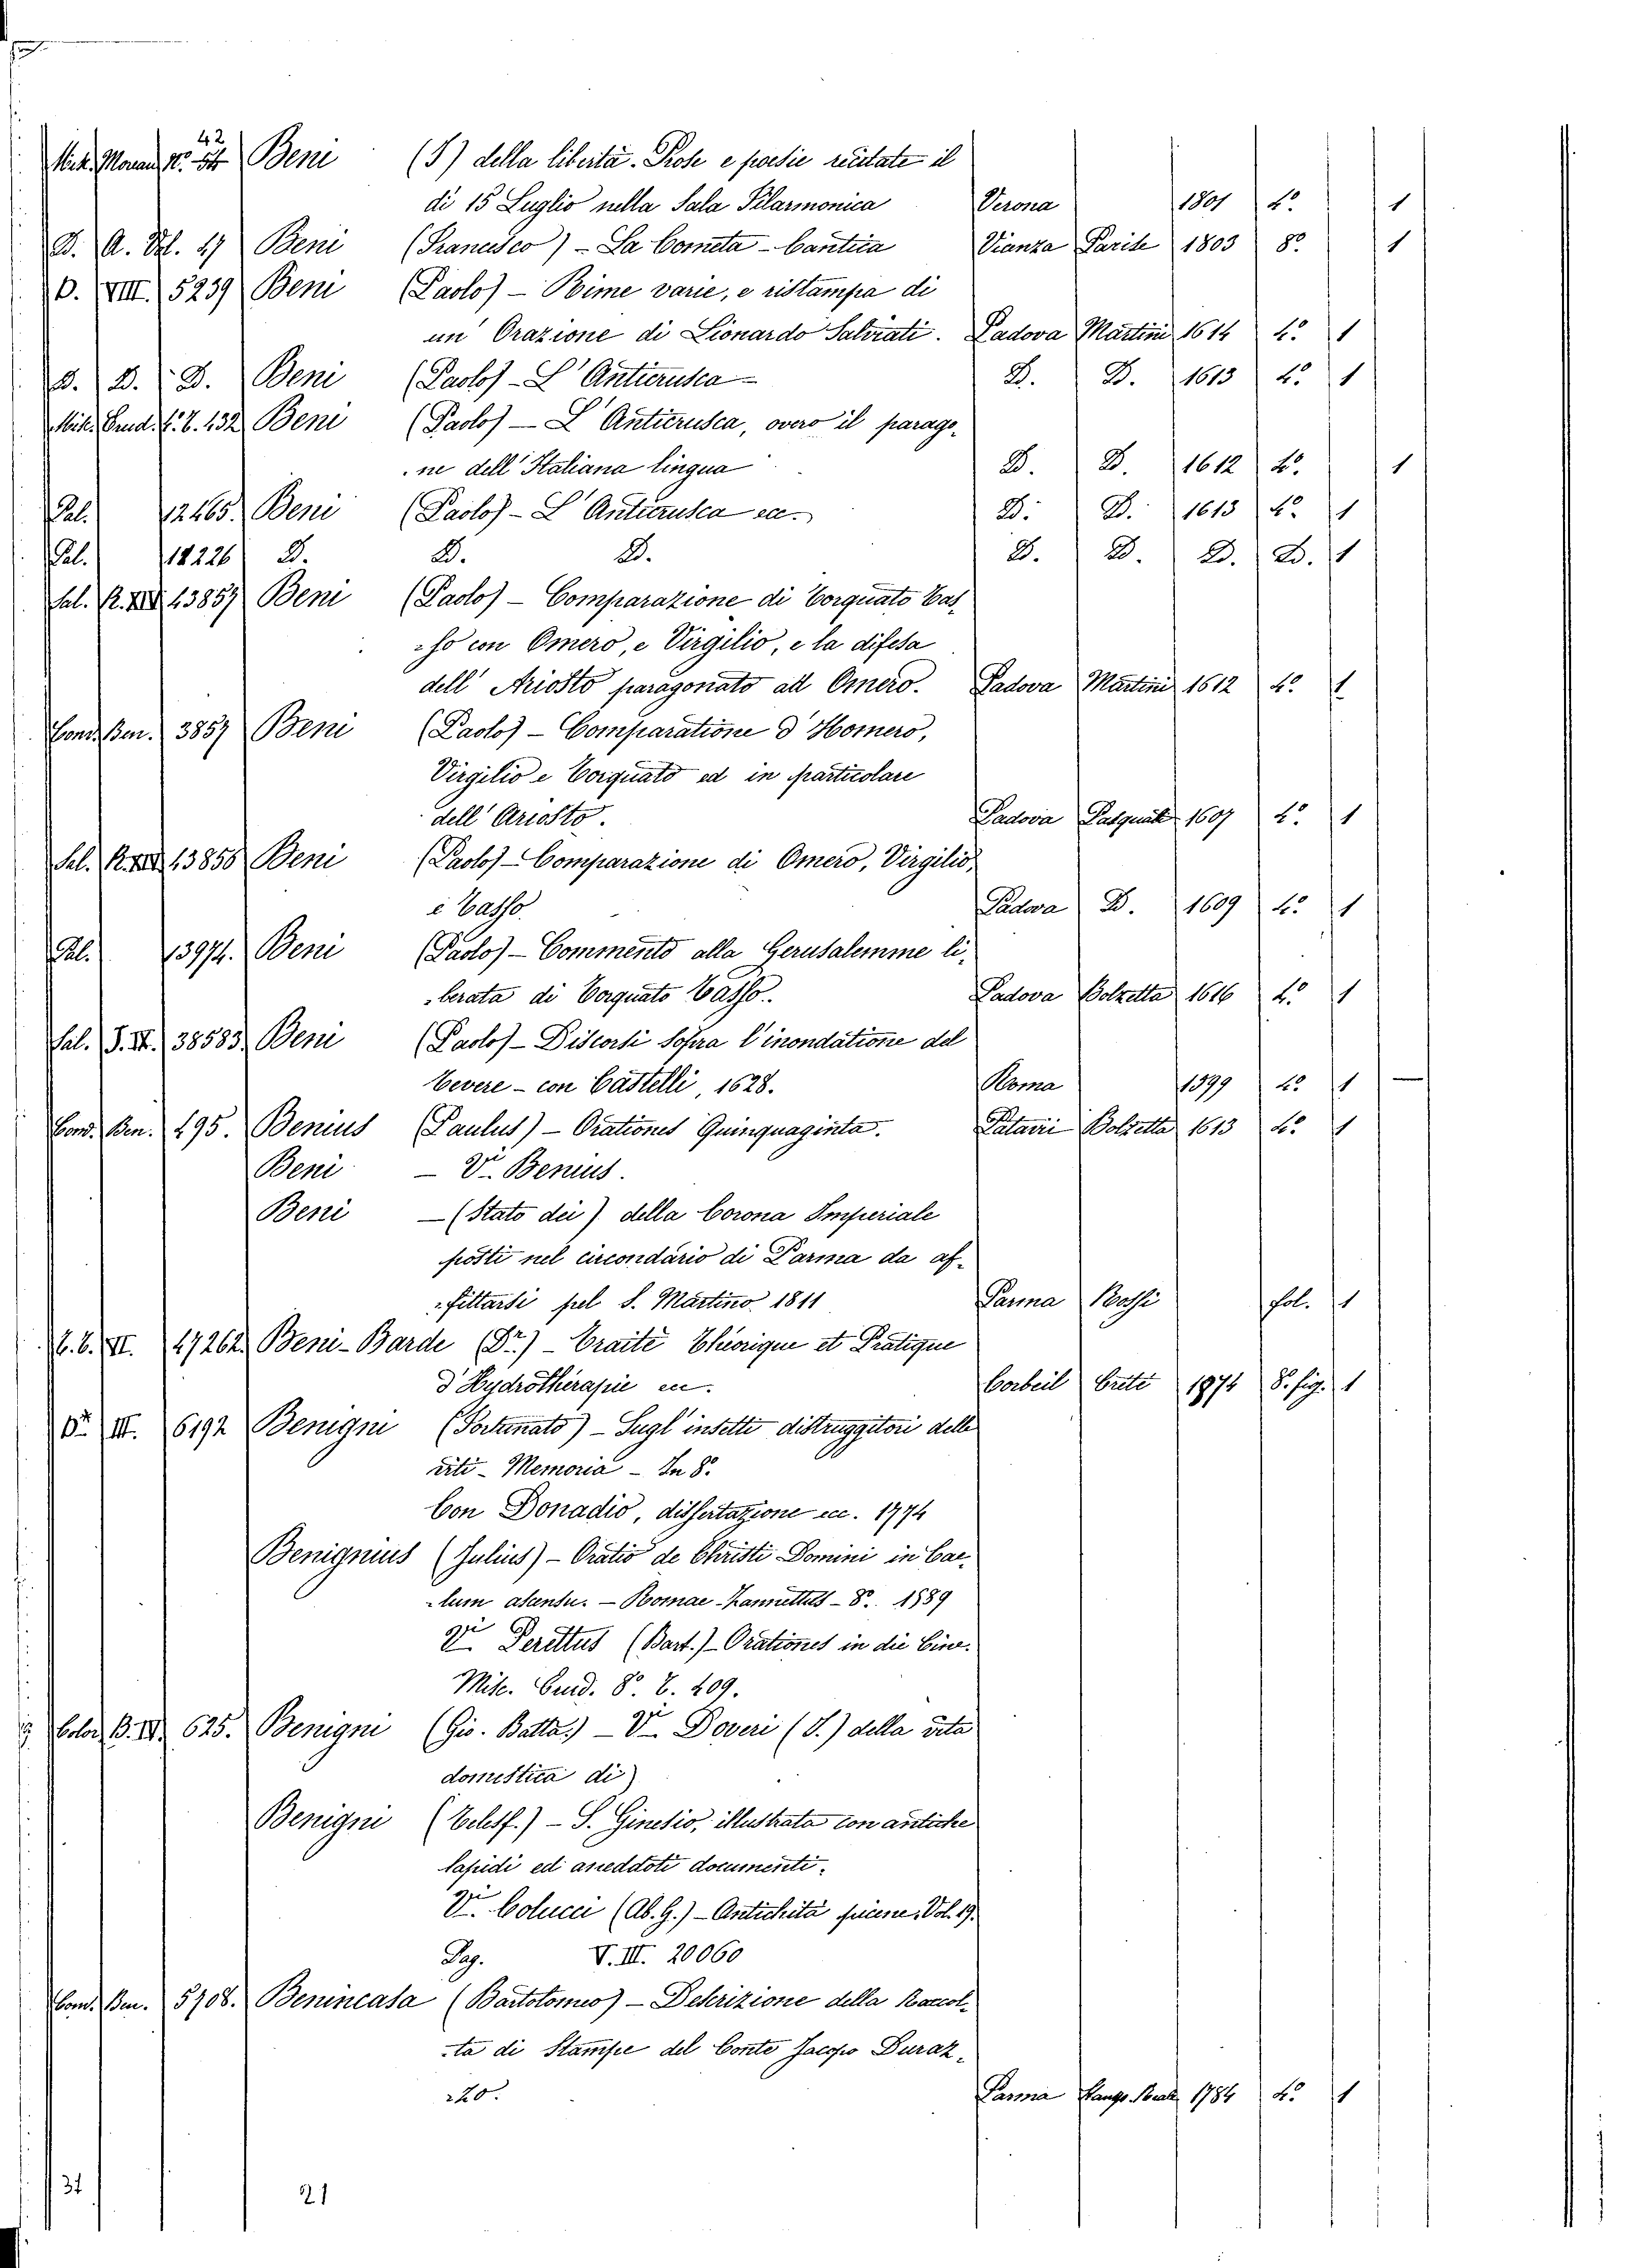 42
Beni (I) della libertà. Prose e poesie recitate il
di 15 Luglio nella Sala Filarmonica Verona 1801 4.° 1
D. A. 47 Beni (Francesco) - La Cometa - Cantica Vianza Parise 1803 8.° 1
VIII. 5239 Beni (Paolo) - Rime varie, e ristampa di
un' Orazione di Lionardo Salviati. Padova Martini 1614 4.° 1
D. D. D. Beni (Paolo) - L'Anticrusca D. D. 1613 4.° 1
Misc. Erud. 4.° T. 132 Beni (Paolo) - L'Anticrusca, overo il parago-
-ne dell'Italiana lingua D. D. 1612 4.° 1
Pal. 12465. Beni (Paolo) - L'Anticrusca ec. D. D. 1613 4.° 1
Pal. 14226 D. D. D. D. D. D. D. 1
Sal. R. XIII 13857 Beni (Paolo) - Comparazione di Torquato Tas-
-so con Omero, e Virgilio, e la difesa
dell' Ariosto paragonato ad Omero. Padova Martini 1612 4.° 1
Cond. Ben. 3857 Beni (Paolo) - Comparatione d'Homero,
Virgilio e Torquato ed in particolare
dell' Ariosto. Padova Pasquati 1607 4.° 1
Sal. R. XIII 13856 Beni (Paolo) - Comparazione di Omero, Virgilio,
e Tasso Padova D. 1609 4.° 1
Pal. 13974. Beni (Paolo) - Commento alla Gerusalemme li-
-berata di Torquato Tasso. Padova Bolzetta 1616 4.° 1
Sal. S. II. 38583. Beni (Paolo) - Discorsi sopra l'inondatione del
Tevere - con Castelli, 1628. Roma 1599 4.° 1 —
Cond. Ben. 495. Benius (Paulus) - Orationes Quinquaginta. Patavii Bolzetta 1613 4.° 1
Beni - V.i Benius.
Beni - (Stato dei) della Corona Imperiale
posti nel circondario di Parma da af-
-fittarsi pel S. Martino 1811 Parma Rossi fol. 1
T. T. VI. 47262. Beni-Barde (Dr.) - Traité Théorique et Pratique
d'Hydrothérapie ec. Corbeil Crété 1874 8.° fig. 1
III. 6192 Benigni (Fortunato) - Sugl' insetti distruggitori delle
viti - Memoria - In 8.°
Con Donadio, dissertazione ec. 1774
Benignius (Julius) - Oratio de Christi Domini in Cae-
-lum ascensu. - Romae - Zannettus - 8.° 1589
V.i Perettus (Bart.) - Orationes in die Cine.
Misc. Erud. 8.° T. 209.
Color. B. IV. 625. Benigni (Gio. Batta.) - V.i Doveri (I.) della vita
domestica di)
Benigni (Telesf.) - S. Ginesio, illustrata con antiche
lapidi ed aneddoti documenti.
V.i Colucci (Ab. G.) - Antichità picene, Vol. 19.
Pag. V. III. 20060
Cond. Ben. 5708. Benincasa (Bartolomeo) - Descrizione della Raccol-
-ta di Stampe del Conte Jacopo Duraz-
-zo. Parma Stamp. Reale 1784 4.° 1
31
21